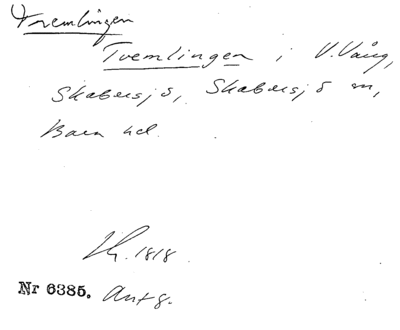 Tvemlingen
Tvemlingen i V. Vång,
Skabersjö, Skabersjö sn,
Bara hd.
1818.
Nr 6385. Ant 8.